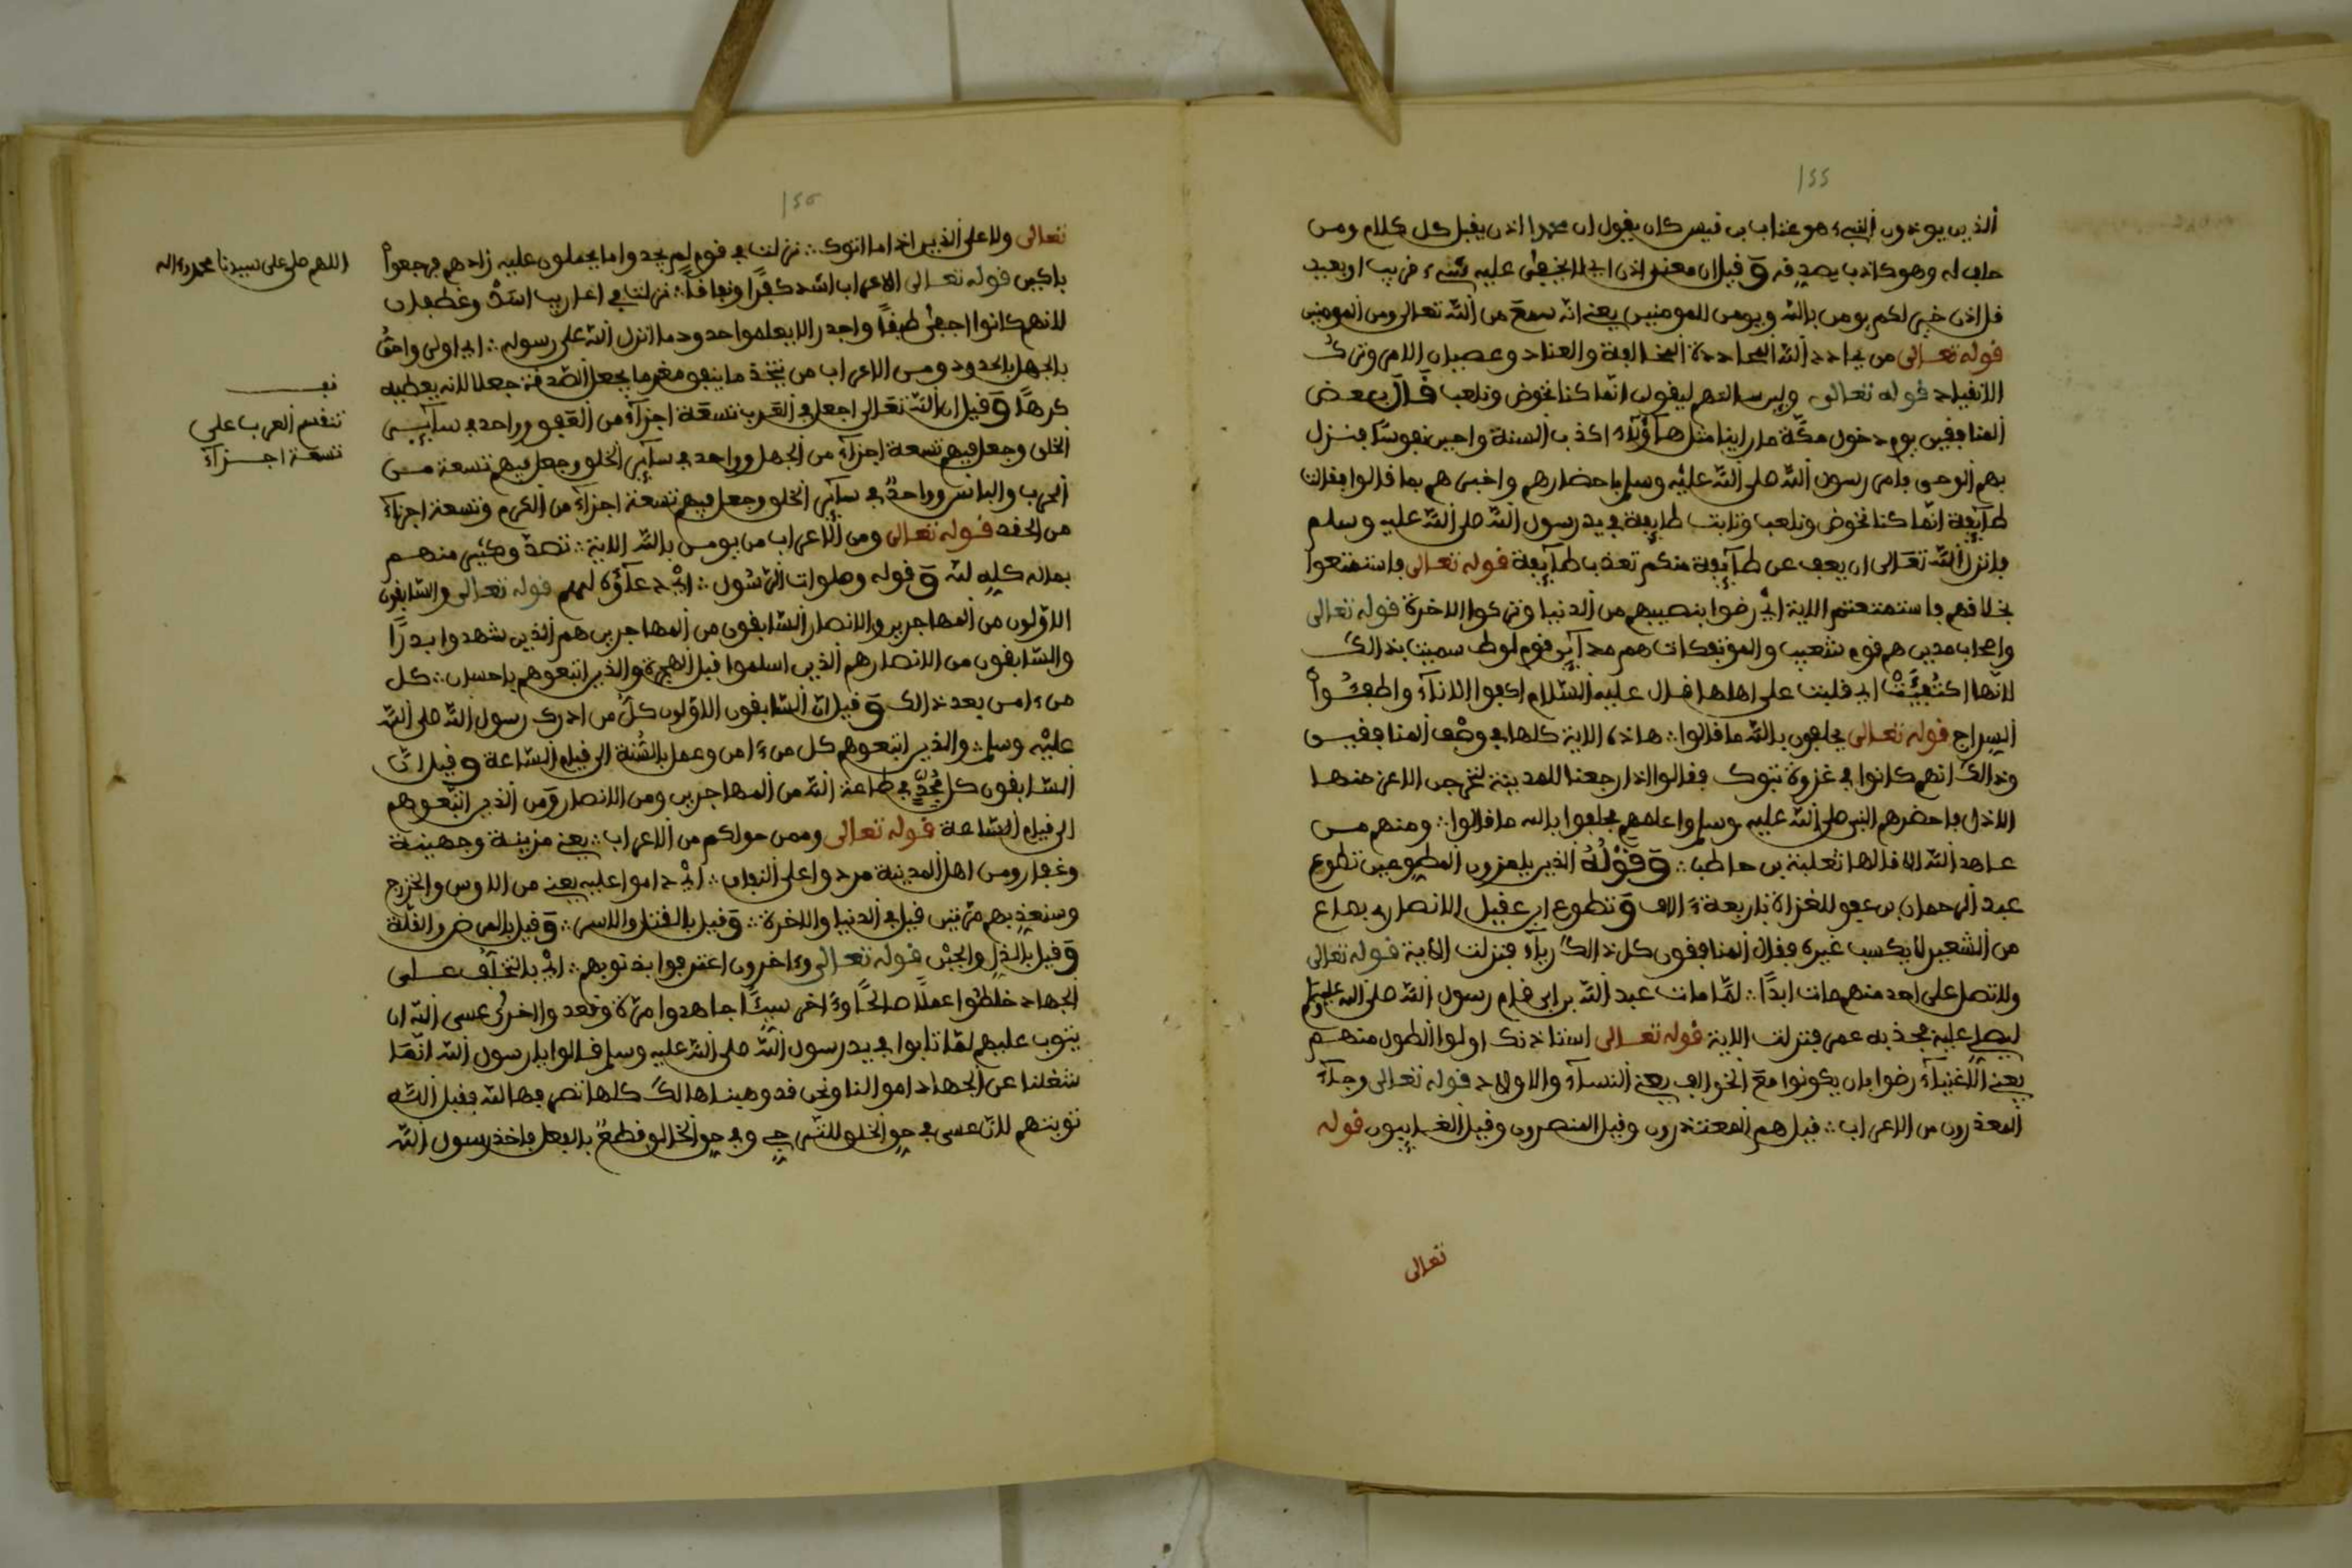 ١٥٥
الذين يوذون النبيء هو عتاب بن قيس كان يقول ان محمدا اذن يقبل كل كلام ومن
حلف له وهو كاذب يصدقه وقيل ان معنى اذن اي لا يخفى عليه شيء قريب او بعيد
قل اذن خير لكم يومن بالله ويومن للمومنين يعني انه سمع من الله تعالى ومن المومنين
قوله تعالى من يحادد الله المحاددة المخالفة والعناد وعصيان الامر وترك
الانقياد قوله تعالى ولين سالتهم ليقولن انما كنا نخوض ونلعب قال بعض
المنافقين يوم دخول مكة ما راينا مثل هاؤلاء اكذب السنة واجبن نفوسا فنزل
بهم الوحي فامر رسول الله صلى الله عليه وسلم باحضارهم واخبرهم بما قالوا فقالت
طايفة انما كنا نخوض ونلعب وتابت طايفة في يد رسول الله صلى الله عليه وسلم
فانزل الله تعالى ان يعف عن طايفة منكم تعذب طايفة قوله تعالى فاستمتعوا
بخلاقهم فاستمتعتم الاية اي رضوا بنصيبهم من الدنيا وتركوا الاخرة قوله تعالى
واصحاب مدين هم قوم شعيب والموتفكات هم مداين قوم لوط سميت بذالك
لانها اكتفيت اي قلبت على اهلها قال عليه السلام اكفوا الاناء واطفئوا
السراج قوله تعالى يحلفون بالله ما قالوا هاذه الاية كلها في وصف المنافقين
وذالك انهم كانوا في غزوة تبوك فقالوا اذا رجعنا للمدينة لنخرجن الاعز منها
الاذل فاحضرهم النبي صلى الله عليه وسلم واعلمهم فحلفوا بالله ما قالوا ومنهم من
عاهد الله الا قالها ثعلبة بن حاطب وقوله الذين يلمزون المطوعين تطوع
عبد الرحمان بن عوف للغزاة باربعة ءالاف وتطوع ابي عقيل الانصاري بصاع
من الشعير لا يكسب غيره فقال المنافقون كل ذالك رياء فنزلت الاية قوله تعالى
ولا تصل على احد منهم مات ابدا لما مات عبد الله بن ابي قام رسول الله صلى الله عليه وسلم
ليصلي عليه فجذبه عمر فنزلت الاية قوله تعالى استاذنك اولوا الطول منهم
يعني الاغنياء رضوا بان يكونوا مع الخوالف يعني النساء والاولاد قوله تعالى وجاء
المعذرون من الاعراب قيل هم المعتذرون وقيل المنصرون وقيل الغايبون قوله
تعالى
تعالى ولا على الذين اذا ما اتوك نزلت في قوم لم يجدوا ما يحملون عليه زادهم فرجعوا
باكين قوله تعالى الاعراب اشد كفرا ونفاقا نزلت في اعاريب اسد وغطفان
لانهم كانوا اجفى طبقا واجدر الا يعلموا حدود ما انزل الله على رسوله اي اولى واحق
بالجهل بالحدود ومن الاعراب من يتخذ ما ينفق مغرما يجعل الصدقة جعلا لانه يعطيه
كرها وقيل ان الله تعالى اجعل في العرب تسعة اجزاء من العفو وواحد في ساير
الخلق وجعل فيهم تسعة اجزاء من الجهل وواحد في ساير الخلق وجعل فيهم تسعة من
الحرب والباس وواحد في ساير الخلق وجعل فيهم تسعة اجزاء من الكرم وتسعة اجزاء
من الحقد قوله تعالى ومن الاعراب من يومن بالله الاية تصدق وكثير منهم
بماله كله لله وقوله وصلوات الرسول اي دعاؤه لهم قوله تعالى والسابقون
الاولون من المهاجرين والانصار السابقون من المهاجرين هم الذين شهدوا بدرا
والسابقون من الانصار هم الذين اسلموا قبل الهجرة والذين اتبعوهم باحسان كل
من ءامن بعد ذالك وقيل ان السابقون الاولون كل من ادرك رسول الله صلى الله
عليه وسلم والذين اتبعوهم كل من ءامن وعمل بالسنة الى قيام الساعة وقيل ان
السابقون كل مجد في طاعة الله من المهاجرين ومن الانصار ومن الذين اتبعوهم
الى قيام الساعة قوله تعالى وممن حولكم من الاعراب يعني مزينة وجهينة
وغفار ومن اهل المدينة مردوا على النفاق اي داموا عليه يعني من الاوس والخزرج
وسنعذبهم مرتين قيل في الدنيا والاخرة وقيل بالقتل والاسر وقيل بالمرض والقلة
وقيل بالذل والجبن قوله تعالى وءاخرون اعترفوا بذنوبهم اي بالتخلف على
الجهاد خلطوا عملا صالحا وءاخر سيئا جاهدوا مرة وقعد والاخرى عسى الله ان
يتوب عليهم لما تابوا في يد رسول الله صلى الله عليه وسلم قالوا يا رسول الله انما
شغلنا عن الجهاد اموالنا ونحن قد وهبناها لك كلها تصرفها لله فقبل الله
توبتهم لان عسى في حق الخلق للترجي وفي حق الخالق قطع بالفعل فاخذ رسول الله
اللهم صل على سيدنا محمد وءاله
قف
تنقسم العرب على
تسعة اجزاء